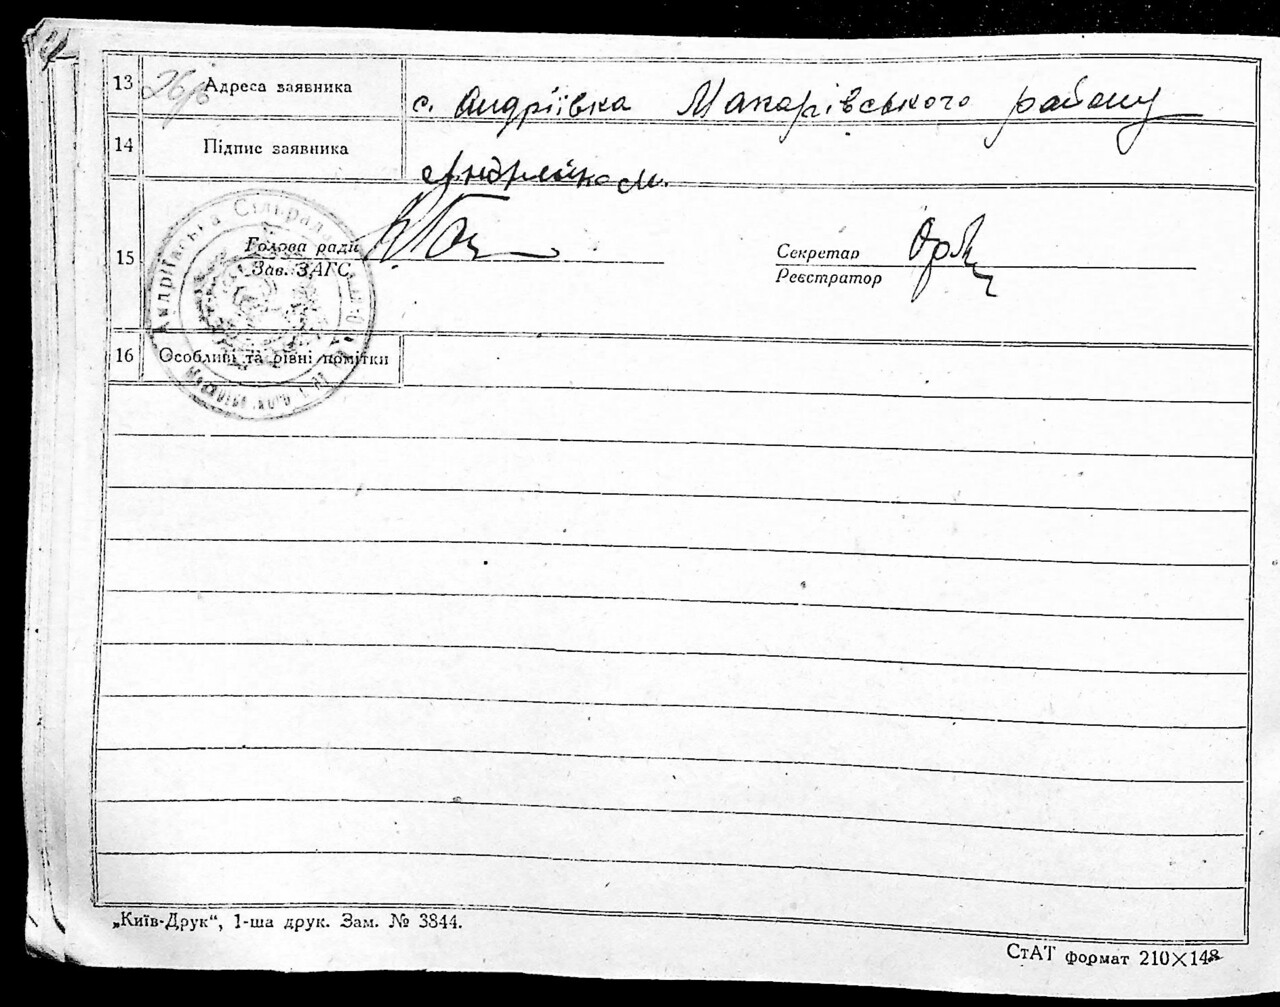 13 Адреса заявника с. Андріївка Макарівського району
14 Підпис заявника Андрійко М.
Андріївська Сільрада
15 Голова ради
Зав. ЗАГС
Секретар
Реєстратор
16 Особливі та рівні помітки
„Київ-Друк“, 1-ша друк. Зам. № 3844.
СтАТ формат 210×148